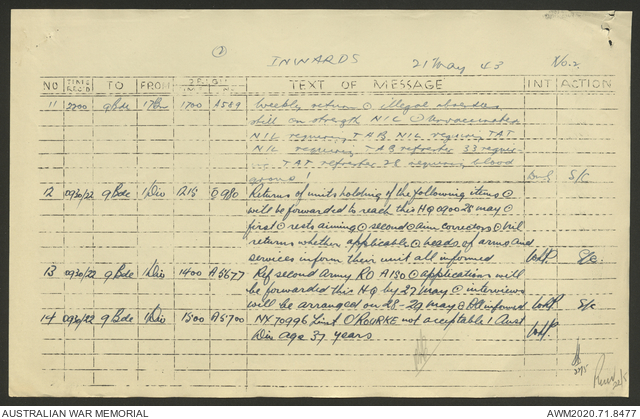 ② INWARDS 21 May 43 No.
NO TIME REC'D TO FROM ORIGIN TEXT OF MESSAGE INT ACTION
11 2200 9 Bde 1700 A589 Weekly return illegal absentees
still on strength NIL unvaccinated
NIL requiring TAB NIL requiring TAT
NIL requiring TAB refresher 33
TAT refresher 28 requiring blood
S/c
12 0930/22 9 Bde 1 Div 1215 980 Returns of units holding of the following items
will be forwarded to reach this HQ 0900 25 may
first rests aiming second aim correctors Nil
returns whether applicable heads of arms and
services inform their unit all informed
13 0930/22 9 Bde 1 Div 1400 A5677 Ref second Army RO A150 applications will
be forwarded this HQ by 27 may interviews
will be arranged on 28-29 may informed S/c
14 0930/22 9 Bde 1 Div 1500 A5700 NX 70996 Lieut O'ROURKE not acceptable 1 Aust
Div age 37 years
22/5
AUSTRALIAN WAR MEMORIAL AWM2020.71.8477